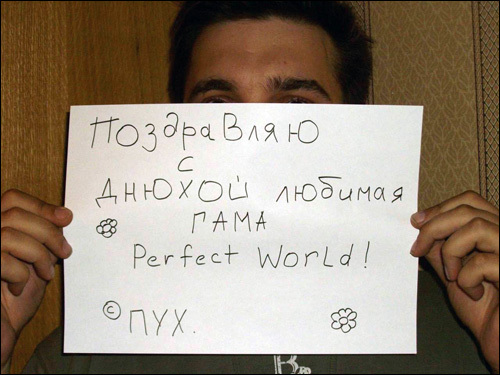 Поздравляю
с
днюхой любимая
гама
Perfect World!
© ПУХ.